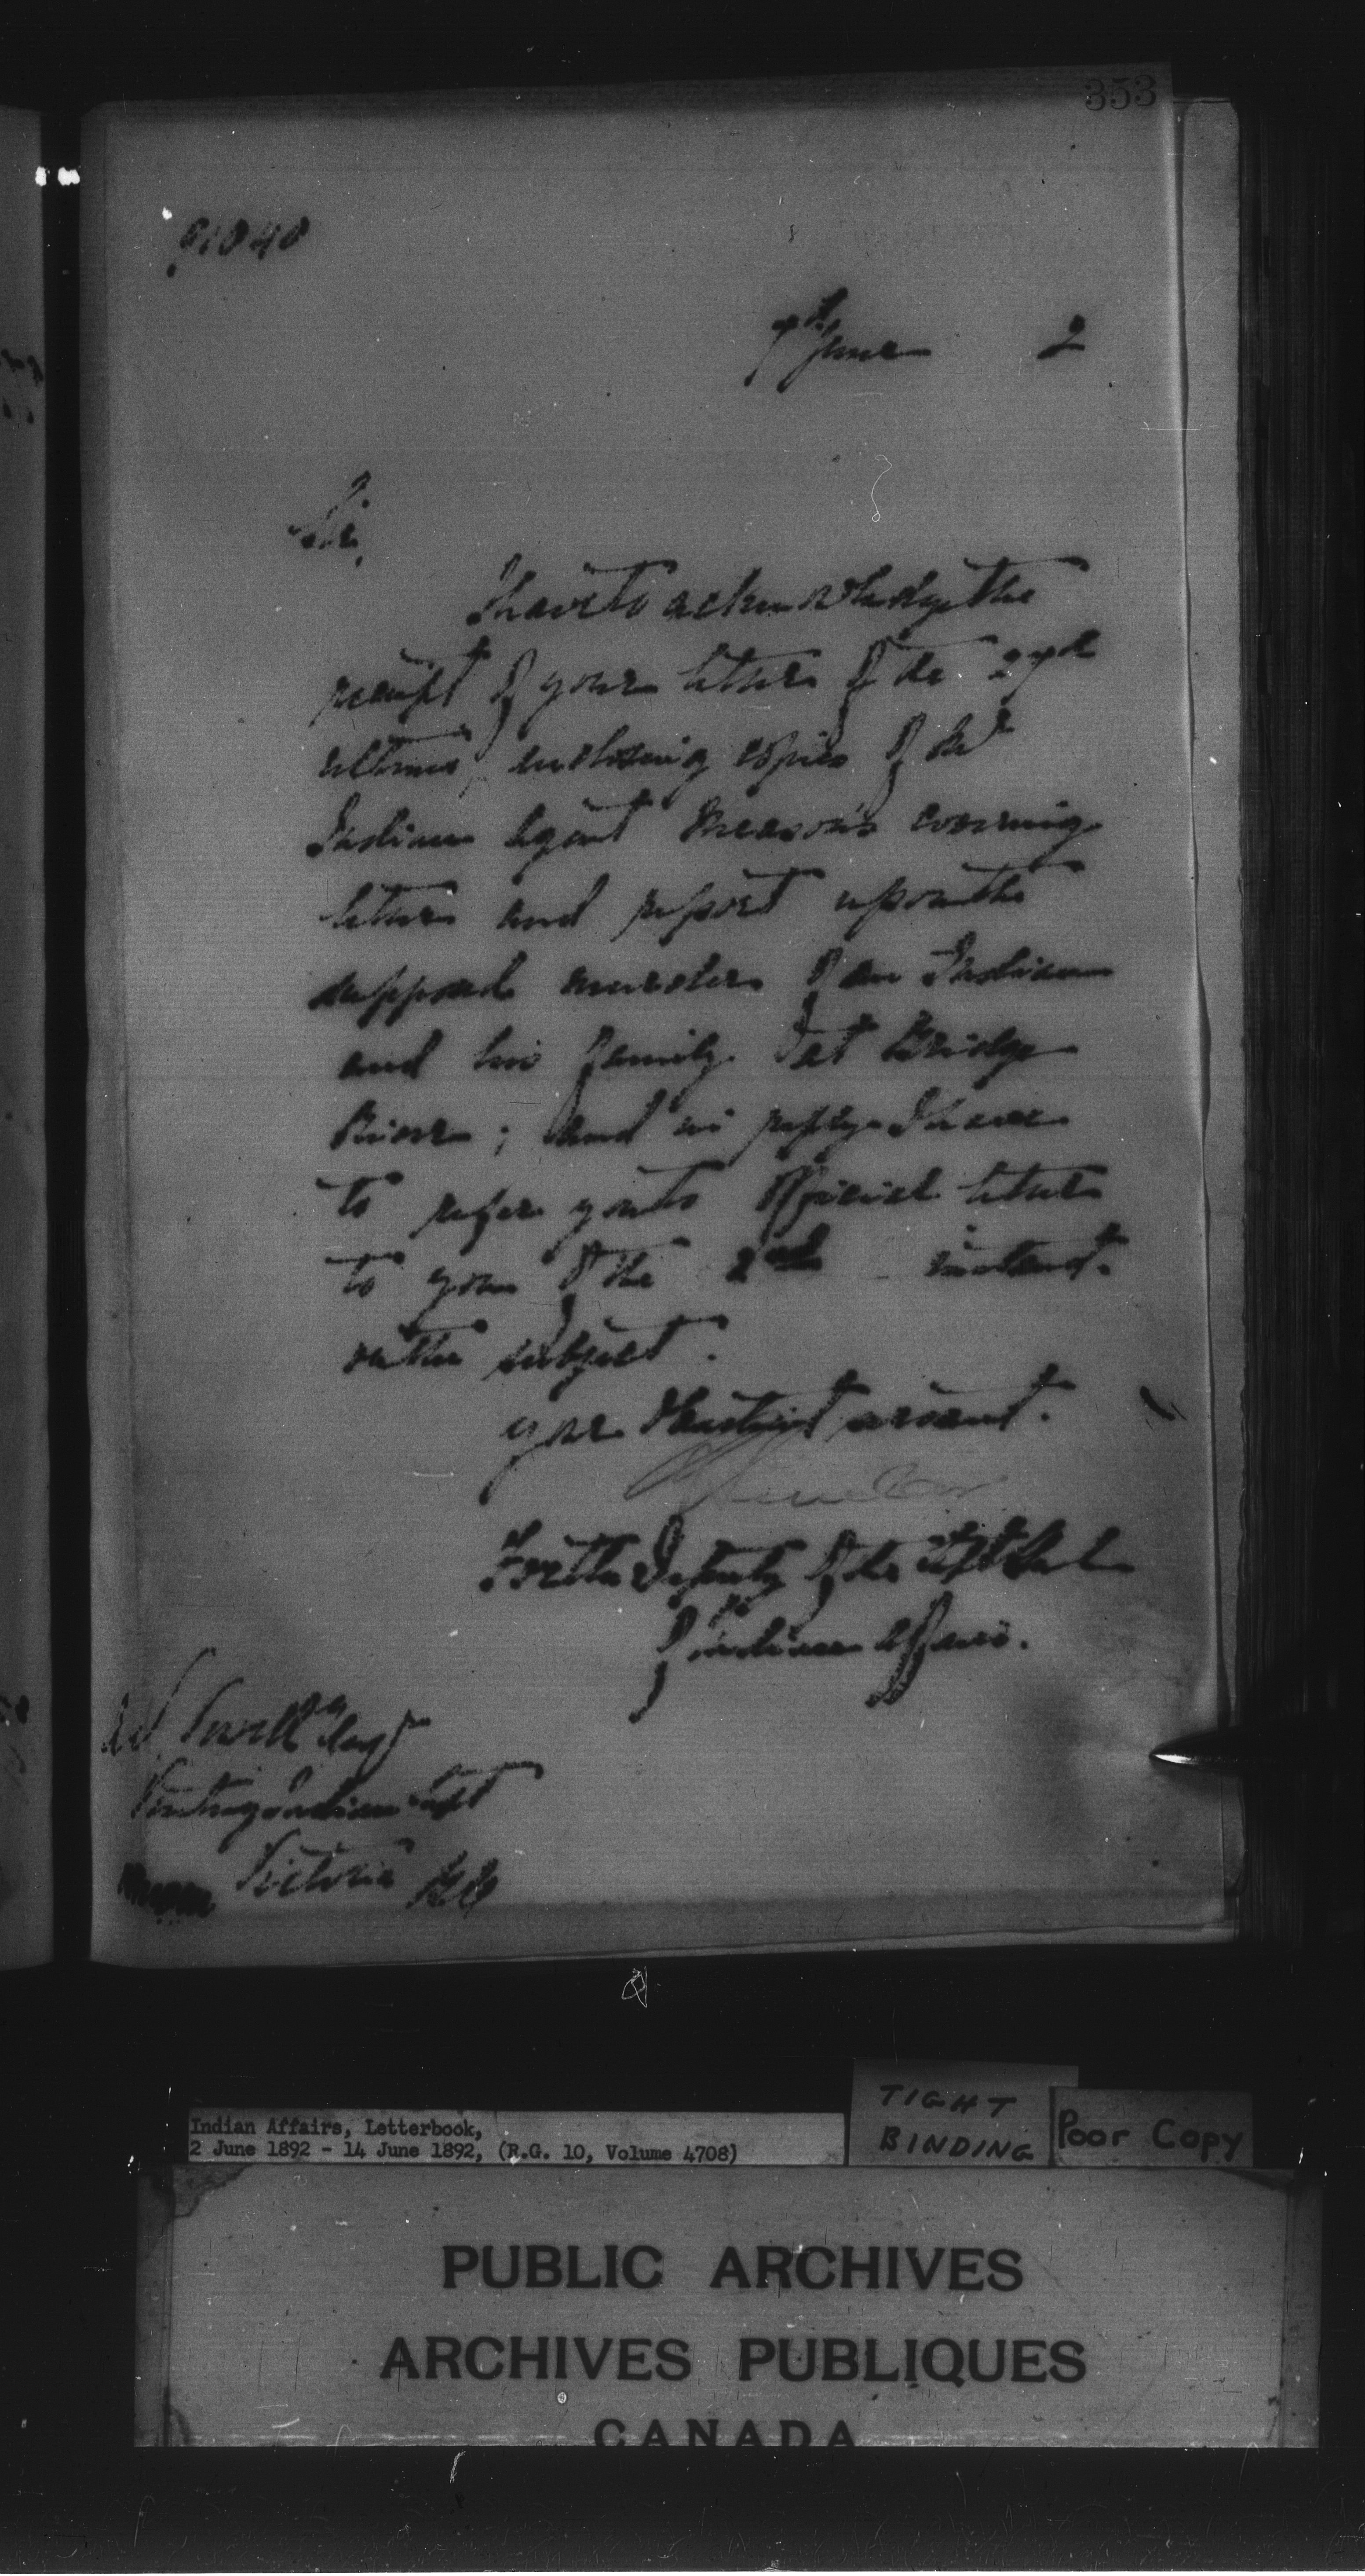 353
91040
7th June 2
Sir,
I have to acknowledge the
receipt of your letter of the 27th
ultimo, enclosing copies of
Indian Agent Meason's covering
letter and report upon the
supposed murder of an Indian
and his family at Bridge
River; and in reply I have
to refer you to official letter
to you of the 2nd instant.
on the subject.
your obedient servant.
For the Deputy of the Supt Genl
of Indian Affairs.
A W Vowell Esqr
Indian Supt
Victoria BC
Indian Affairs, Letterbook,
2 June 1892 - 14 June 1892, (R.G. 10, Volume 4708)
TIGHT
BINDING
Poor Copy
PUBLIC ARCHIVES
ARCHIVES PUBLIQUES
CANADA